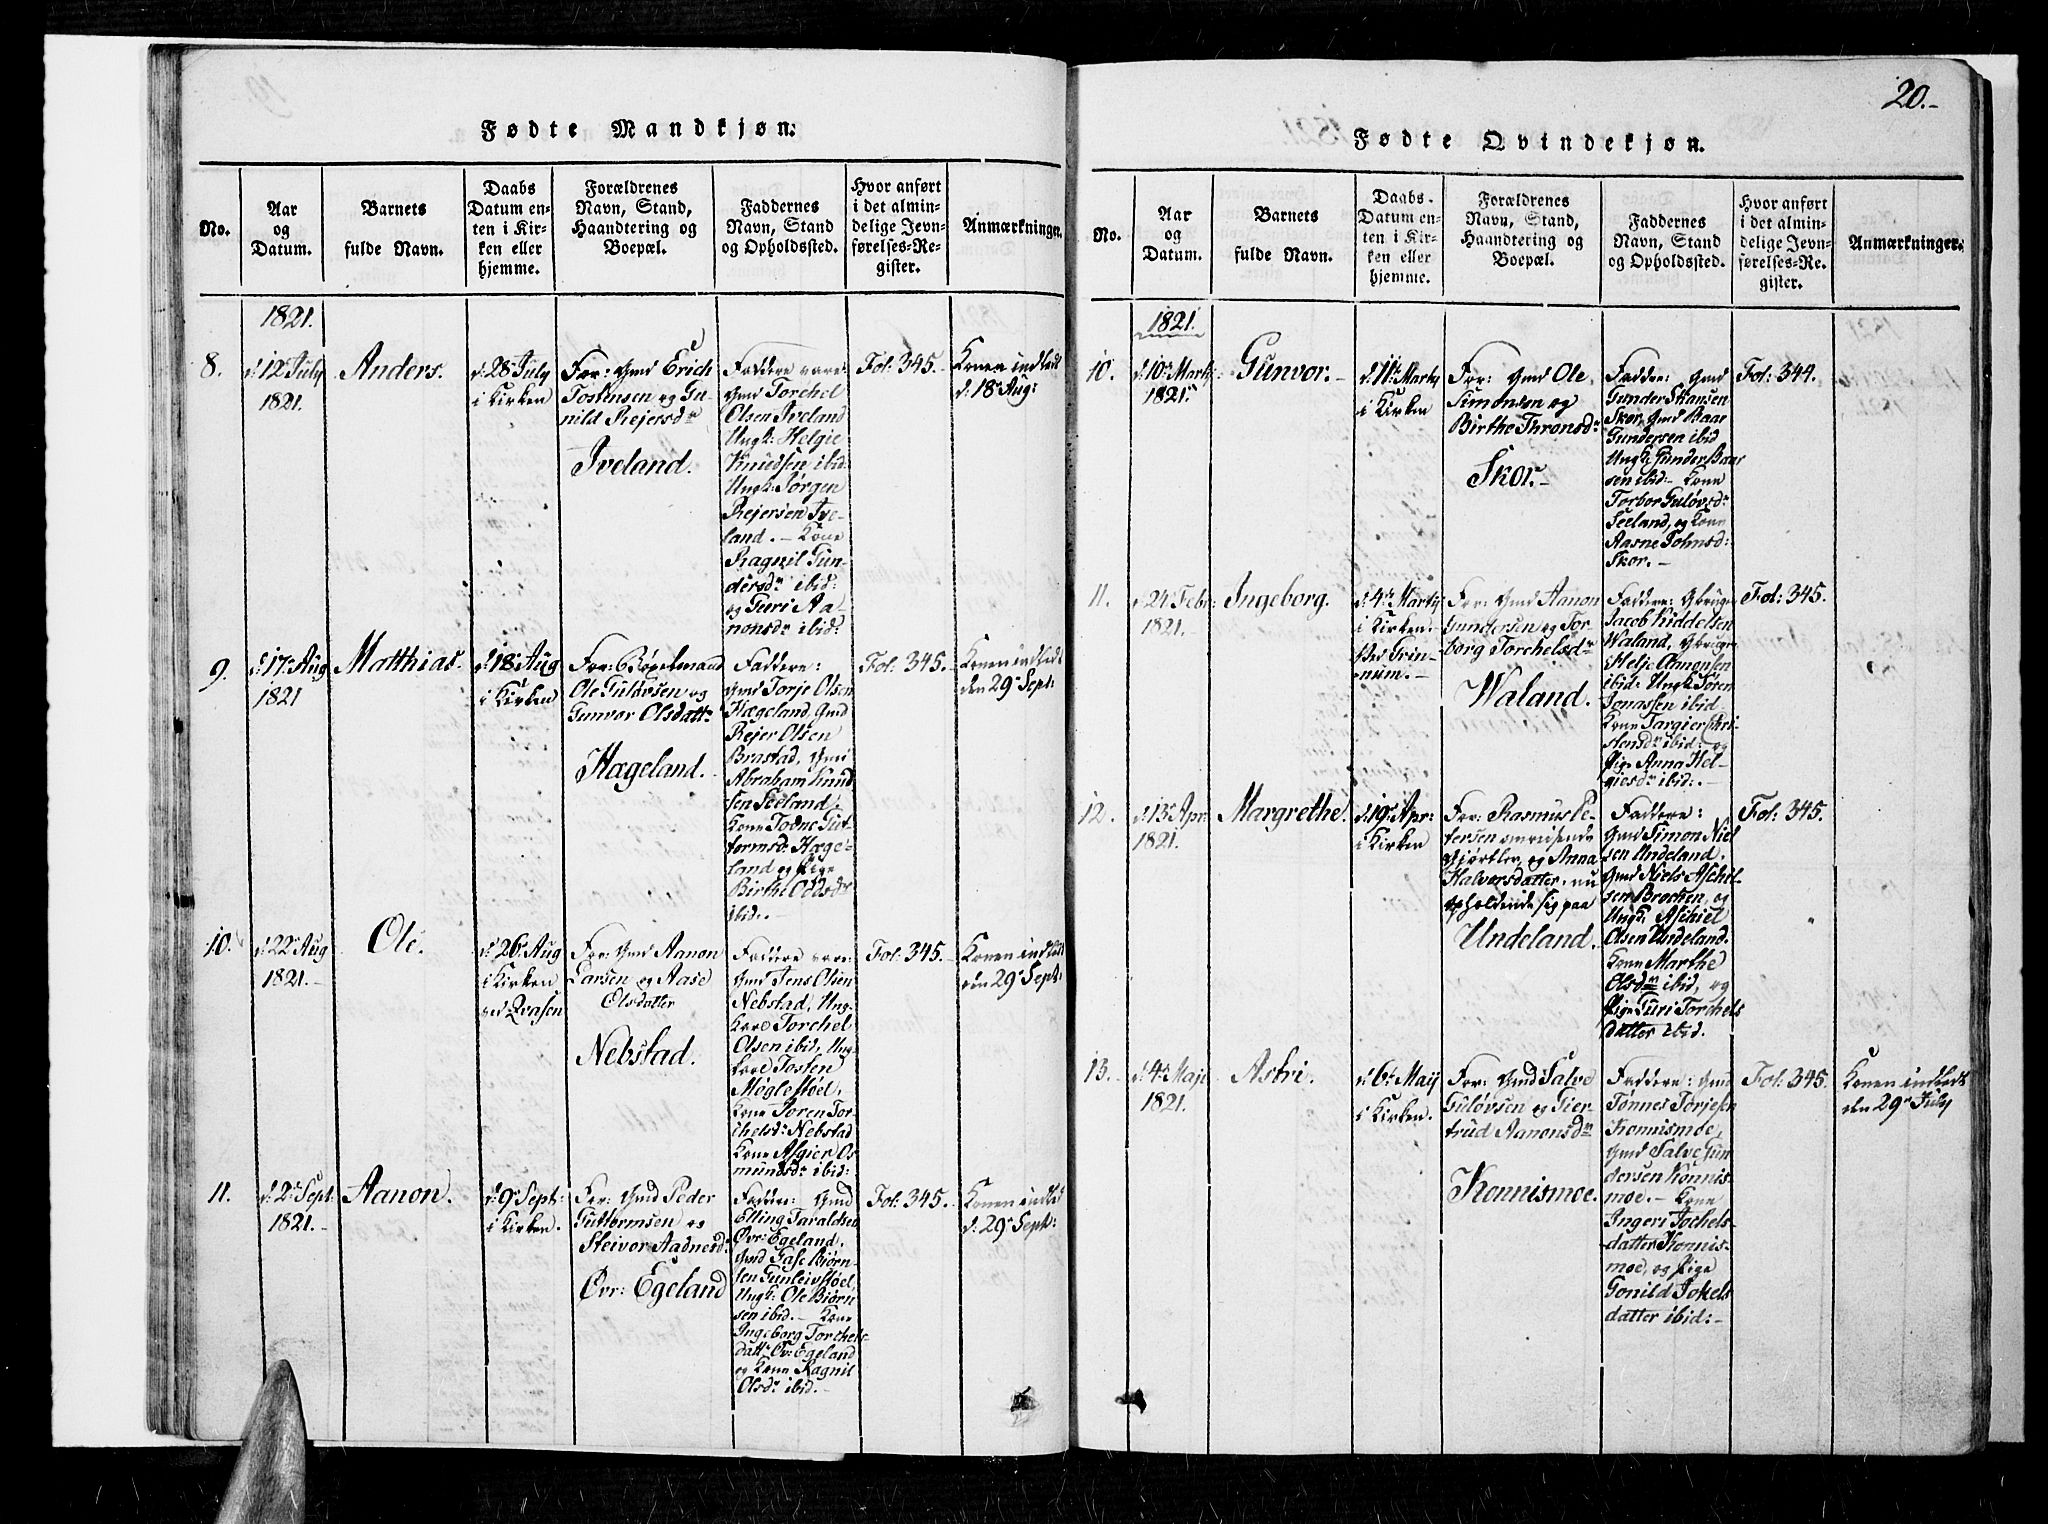 Fødte Mandkjøn.
No.
Aar
og
Datum.
Barnets
fulde Navn.
Daabs
Datum en-
ten i Kir-
ken eller
hjemme.
Forældrenes
Navn, Stand,
Haandtering og
Boepæl.
Faddernes
Navn, Stand
og Opholdssted.
Hvor anført
i det almin-
delige Jevn-
førelses-Re-
gister.
Anmærkninger.
1821.
8.
d: 12 July
1821.
Anders.
d: 28 July
i Kirken
For: Gmd Erich
Tostensen og Gu-
nild Rejersdr
Iveland.
Faddere vare:
Gmd Torchel
Olsen Iveland
Ungk: Helgie
Knudsen ibid:
Ungk: Jørgen
Rejersen Ive-
land. - Kone
Ragnil Gun-
dersdr ibid:
og Guri Aa-
nonsdr ibid:
Fol: 345.
Konen indledt
d. 18 Aug:
9.
d: 17 Aug
1821
Matthias.
d: 18 Aug
i Kirken
For:
Ole Guldvsen og
Gunvor Olsdattr
Hægeland.
Faddere:
Gmd Torje Olsen
Hægeland, Gmd
Rejer Olsen
Brastad, Gmd
Abraham Knud
sen Seeland,
Kone Todne Gut-
tormsd: Hæge-
land og Pige
Birthe Oldsdr
ibid. -
Fol: 345.
Konen indledt
den 29 Sept:
10.
d: 22 Aug
1821. -
Ole.
d: 26 Aug
i Kirken
ved Qvasen
For: Gmd Aanon
Larsen og Aase
Olsdatter
Nebstad.
Faddere vare:
Gmd Jens Olsen
Nebstad, Ung-
karl Torchel
Olsen ibid, Ung-
karl Tosten
Møglestøel,
Kone Joren Tor-
chelsdr Nebstad
Kone Asgier Os
mundsdr ibid:
Fol: 345.
Konen indledt
den 29 Sept:
11.
d: 2 Sept:
1821. -
Aanon.
d: 9 Sept:
i Kirken.
For: Gmd Peder
Guttormsen og
Steivor Aadnesd:
Øvr: Egeland
Faddere: Gmd
Elling Taraldsen
Øvr: Egeland,
Gmd Fase Biørn-
sen Gunleivstøel,
Ungk: Ole Biørn
sen ibid. - Kone
Ingeborg Torchels-
dattr Øv: Egeland
og Kone Ragnil
Olsdr ibid. -
Fol: 345.
Konen indled
d: 29 Sept:
20. -
Fødte Qvindekjøn.
No.
Aar
og
Datum.
Barnets
fulde Navn.
Daabs-
Datum en-
ten i Kir-
ken eller
hjemme.
Forældrenes
Navn, Stand,
Haandtering og
Boepæl.
Faddernes
Navn, Stand
og Opholdssted.
Hvor anført
i det almin-
delige Jevn-
førelses-Re-
gister.
Anmærkninger.
1821.
10.
d: 10 Martj
1821.
Gunvor. -
d: 11 Martj
i Kirken
For: Gmd Ole
Simonsen og
Birthe Thronsdr
Skor. -
Faddere: Gmd
Gunder Skansen
Skor, Gmd Baar
Gundersen ibid
Ungk: Gunder Baar
sen ibid: - Kone
Torbor Guløvsdr
Seeland, og Kone
Aasne Tolmsd:
Skor. -
Fol: 344.
11.
d: 24 Febr:
1821. -
Ingeborg.
d: 4 Martj
i Kirken.
Ved Grin-
num. -
For: Gmd Aanon
Gundersen og Tor-
borg Torchelsdr
Waland.
Faddere: Gbruger
Jacob Kiddelsen
Waland, Gbruger
Helje Aanonsen
ibid: Ungk Søren
Jonassen ibid.
Kone Targier Chri-
stensdr ibid: og
Pige Anna Hel-
giesdr ibid: . -
Fol: 345.
12.
d: 13 Apr:
1821.
Margrethe.
d: 19 Apr:
i Kirken
For: Rasmus Pe-
tersen omreisende
Giørtler, og Anna
Halvorsdatter, nu
opholdende sig paa
Undeland.
Faddere:
Gmd Simon Niel
sen Undeland,
Gmd Niels Aschil-
sen Brocken, og
Ungk. Aschiel
Olsen Undeland.
Kone Marthe
Olsdr ibid, og
Pige Guri Torchels
datter ibid.
Fol: 345.
13.
d: 4 Maji
1821.
Astri.
d: 6 Maij
i Kirken.
For: Gmd Salve
Guløvsen og Gier-
trud Aanonsdr
Konnismoe.
Faddere: Gmd
Tønnes Torjesen
Konnismoe,
Gmd Salve Gun
dersen Konnis-
moe. - Kone
Ingeri Jochels-
datter Konnis-
moe, og Pige
Gonild Jokels
datter ibid: -
Fol: 345.
Konen indledt
den 29 July